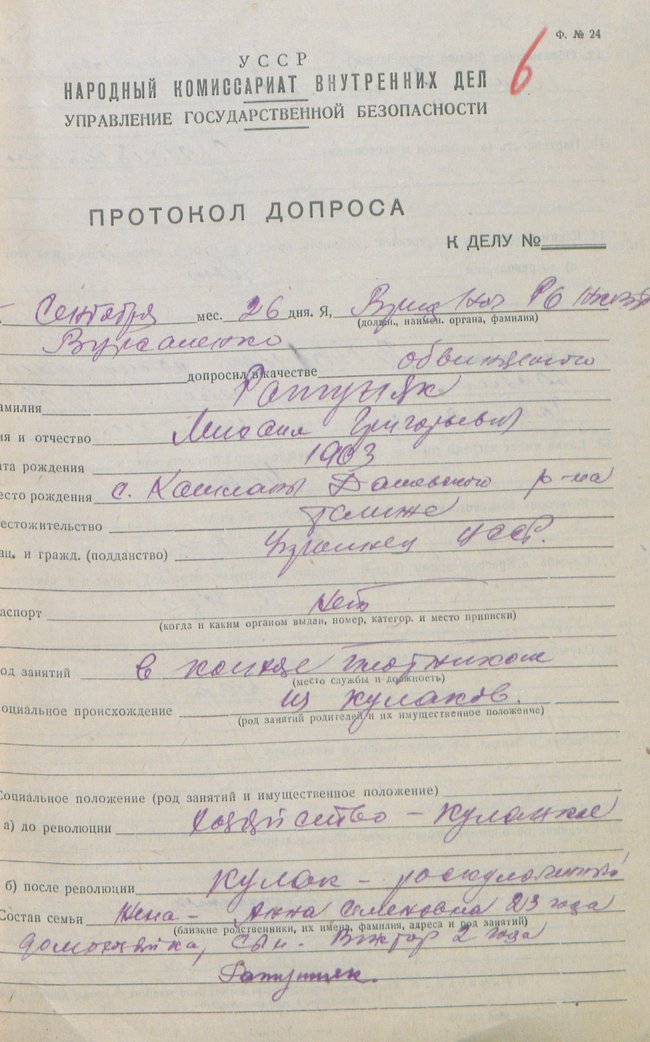 Ф. № 24
6
УССР
НАРОДНЫЙ КОМИССАРИАТ ВНУТРЕННИХ ДЕЛ
УПРАВЛЕНИЕ ГОСУДАРСТВЕННОЙ БЕЗОПАСНОСТИ
ПРОТОКОЛ ДОПРОСА
К ДЕЛУ №
Сентября мес. 26 дня. Я, Врид Нач РО НКВД
(должн., наимен. органа, фамилия)
допросил в качестве обвиняемого
амилия Ратушняк
я и отчество Михаил Григорьевич
ата рождения 1903
есто рождения с. Дашевского р-на
естожительство там же
ац. и гражд. (подданство) Украинец УССР.
аспорт Нет
(когда и каким органом выдан, номер, категор. и место приписки)
од занятий в плотником
(место службы и должность)
оциальное происхождение из кулаков.
(род занятий родителей и их имущественное положение)
Социальное положение (род занятий и имущественное положение)
а) до революции хозяйство – кулацкое
б) после революции кулак – роскулаченный
Состав семьи Жена – Анна Семеновна 23 года
(близкие родственники, их имена, фамилия, адреса и род занятий)
домохозяйка, сын. Виктор 2 года